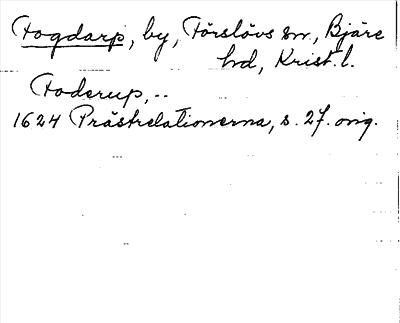 Fogdarp, by, Förslövs sn., Bjäre
hd, Krist. l.
Foderup,..
1624 Prästrelationerna, s. 27. orig.